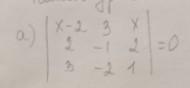 a) | x-2 3 x |
| 2 -1 2 | =0
| 3 -2 1 |